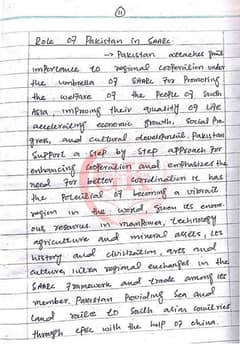 11
Role of Pakistan in SAARC
→ Pakistan attaches
importance to regional cooperation under
the umbrella of SAARC for Promoting
the welfare of the people of South
Asia, improing their quality of life
accelerating economic growth, Social Pro
gress, and cultural development. Pakistan
Support a step by step approach for
enhancing cooperation and emphasized the
need for better coordination it has
the Potential of becoming a vibrait
region in the world given its enorm
ous resources in manpower, technology
agriculture and mineral assets, its
history and civilization, arts and
culture, intra regional exchanges in the
SAARC framework and trade among its
member. Pakistan Poviding sea and
land route to South asian countries
through cpec with the help of china.